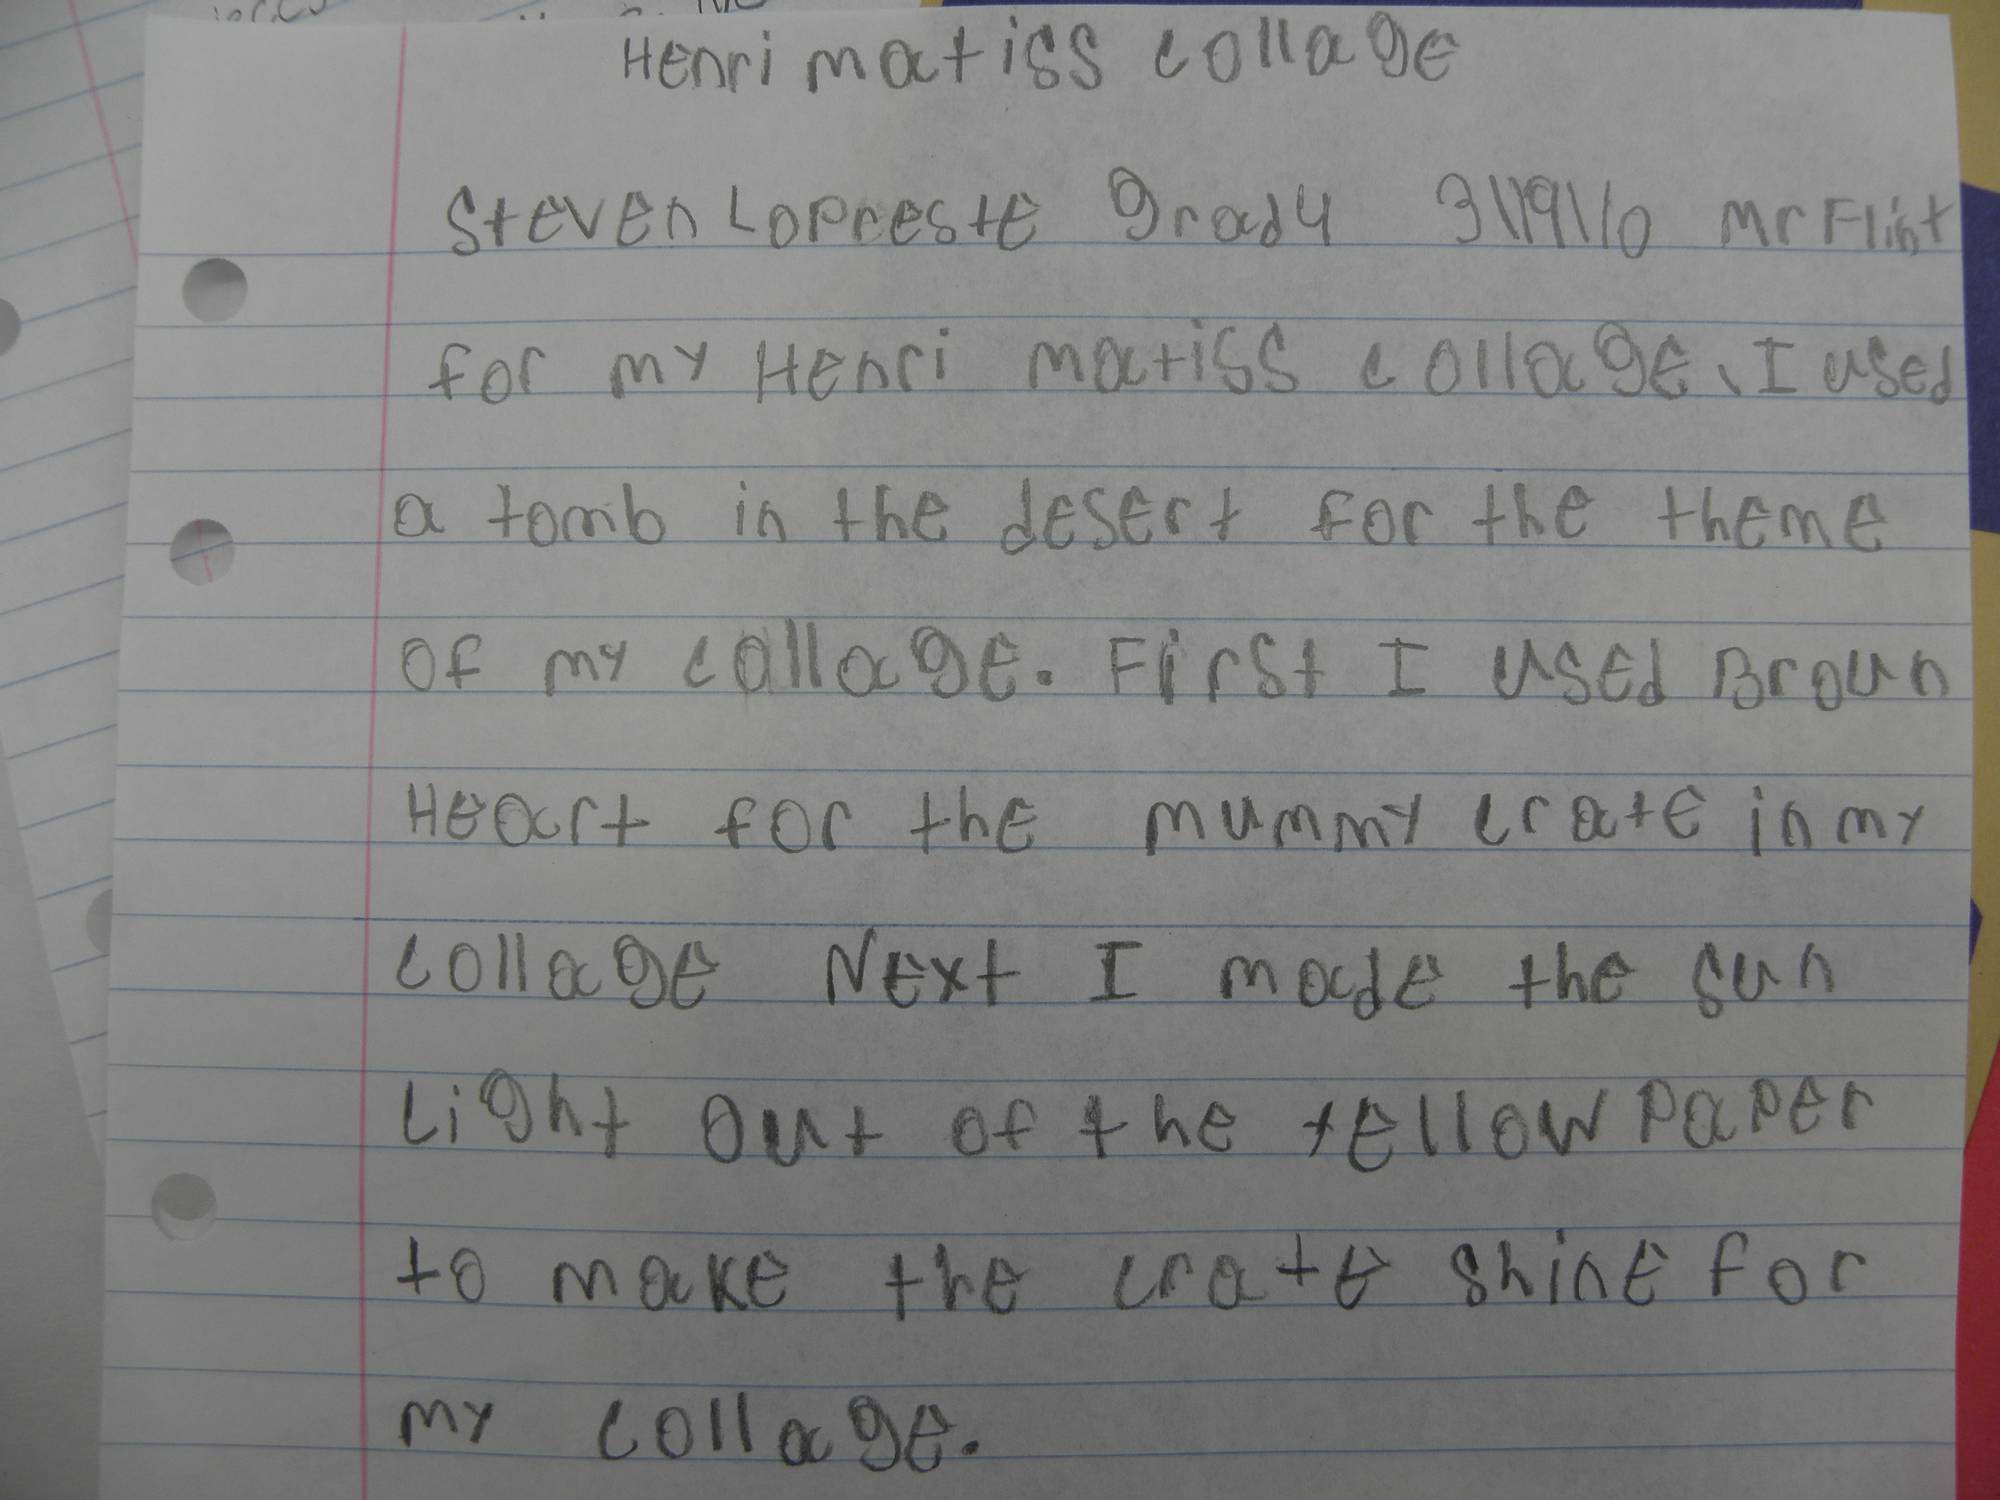 Henri matiss collage
Steven Lopreste Grad4 3/19/10 Mr Flint
for my Henri matiss collage, I used
a tomb in the desert for the theme
of my collage. First I used Broun
Heart for the mummy crate in my
collage Next I made the sun
Light out of the yellow paper
to make the crate shine for
my collage.